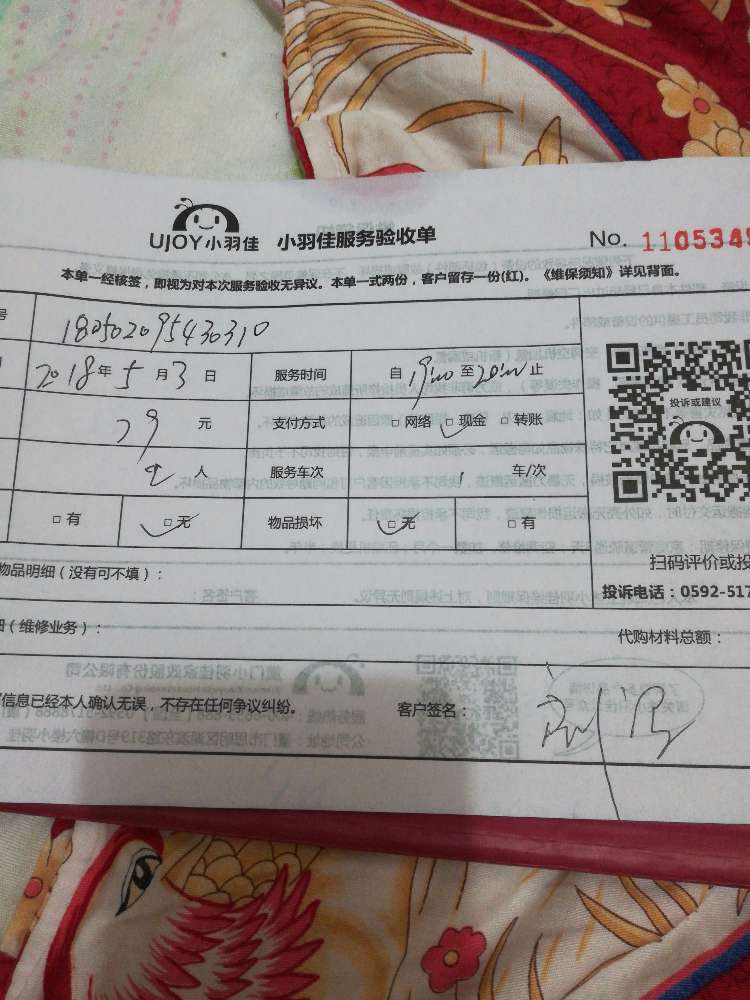 UJOY小羽佳 小羽佳服务验收单 No. 1105348
本单一经核签，即视为对本次服务验收无异议。本单一式两份，客户留存一份(红)。《维保须知》详见背面。
号 180502095430310
2018年5月3日 服务时间 自19:00至20:00止
29元 支付方式 □网络 □现金 □转账
人 服务车次 1车/次
□有 □无 物品损坏 □无 □有
投诉或建议
扫码评价或投
物品明细（没有可不填）：
投诉电话：0592-517
（维修业务）：
代购材料总额：
信息已经本人确认无误，不存在任何争议纠纷。 客户签名：